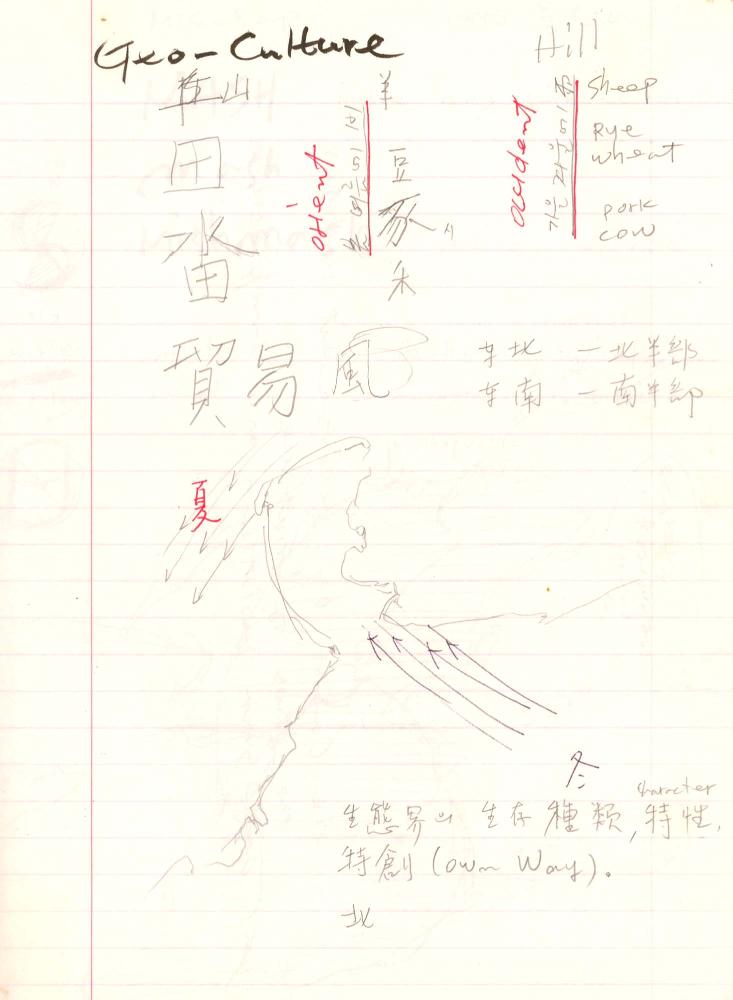 Geo-Culture
Hill
山
羊
Sheep
田
Orient
豆
Occident
Rye
wheat
豕 시
pork
cow
畓
禾
貿易風
东北 一 北半部
东南 一 南半部
夏
冬
character
生態界의 生存種類, 特性,
特創 (own way).
北